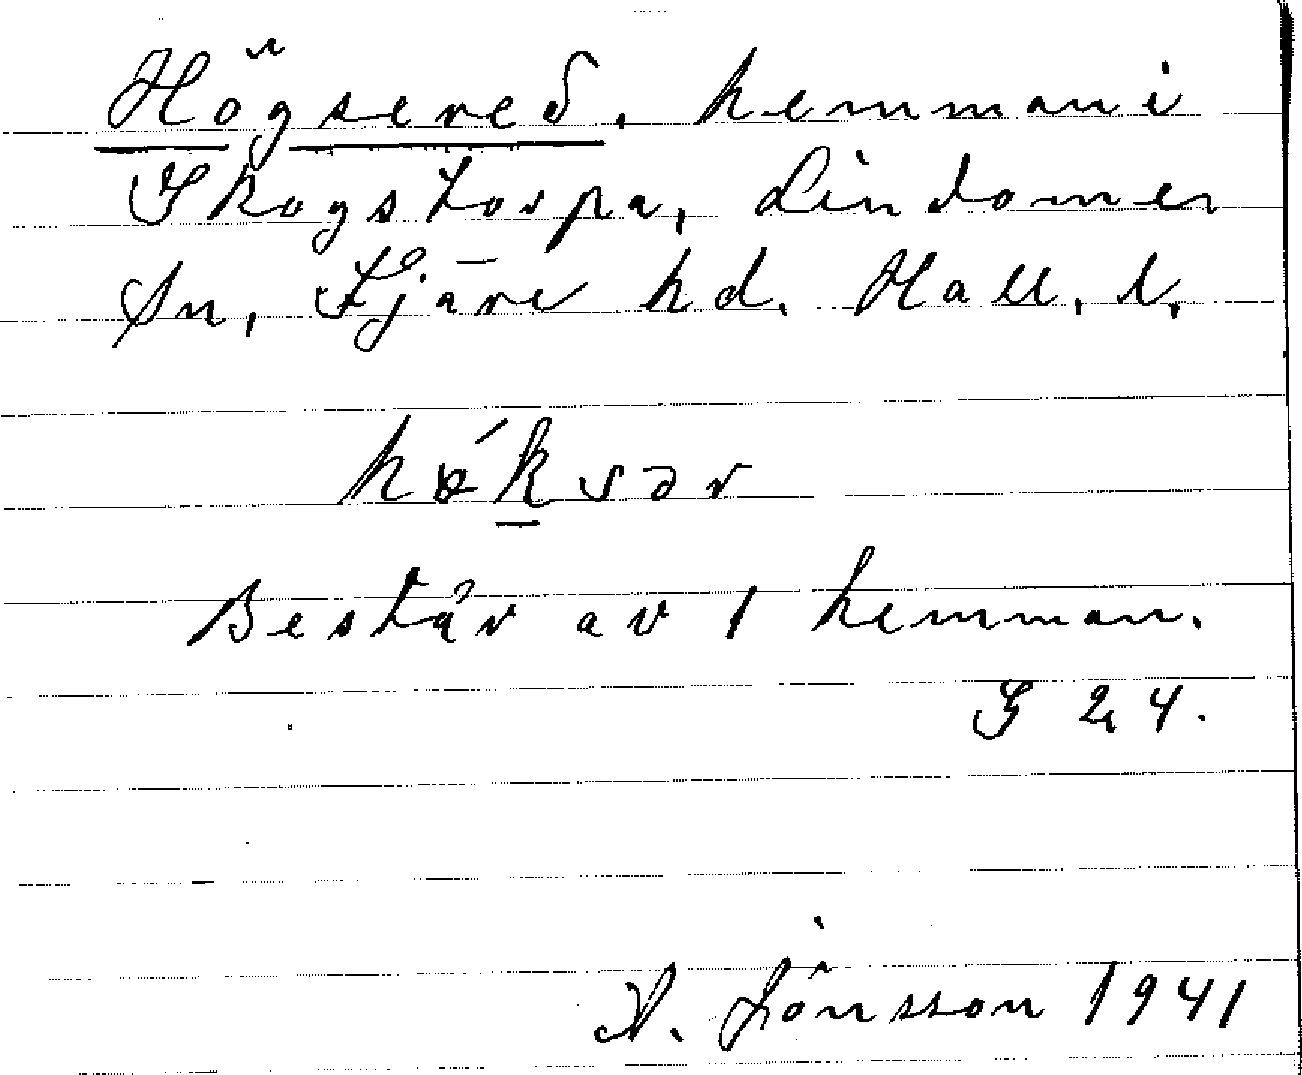 Högsered. hemman i
Skogstorpa, Lindomes
Sn, Fjäre hd. Hall. l.
Består av 1 hemman.
G 24.
A. Jönsson 1941